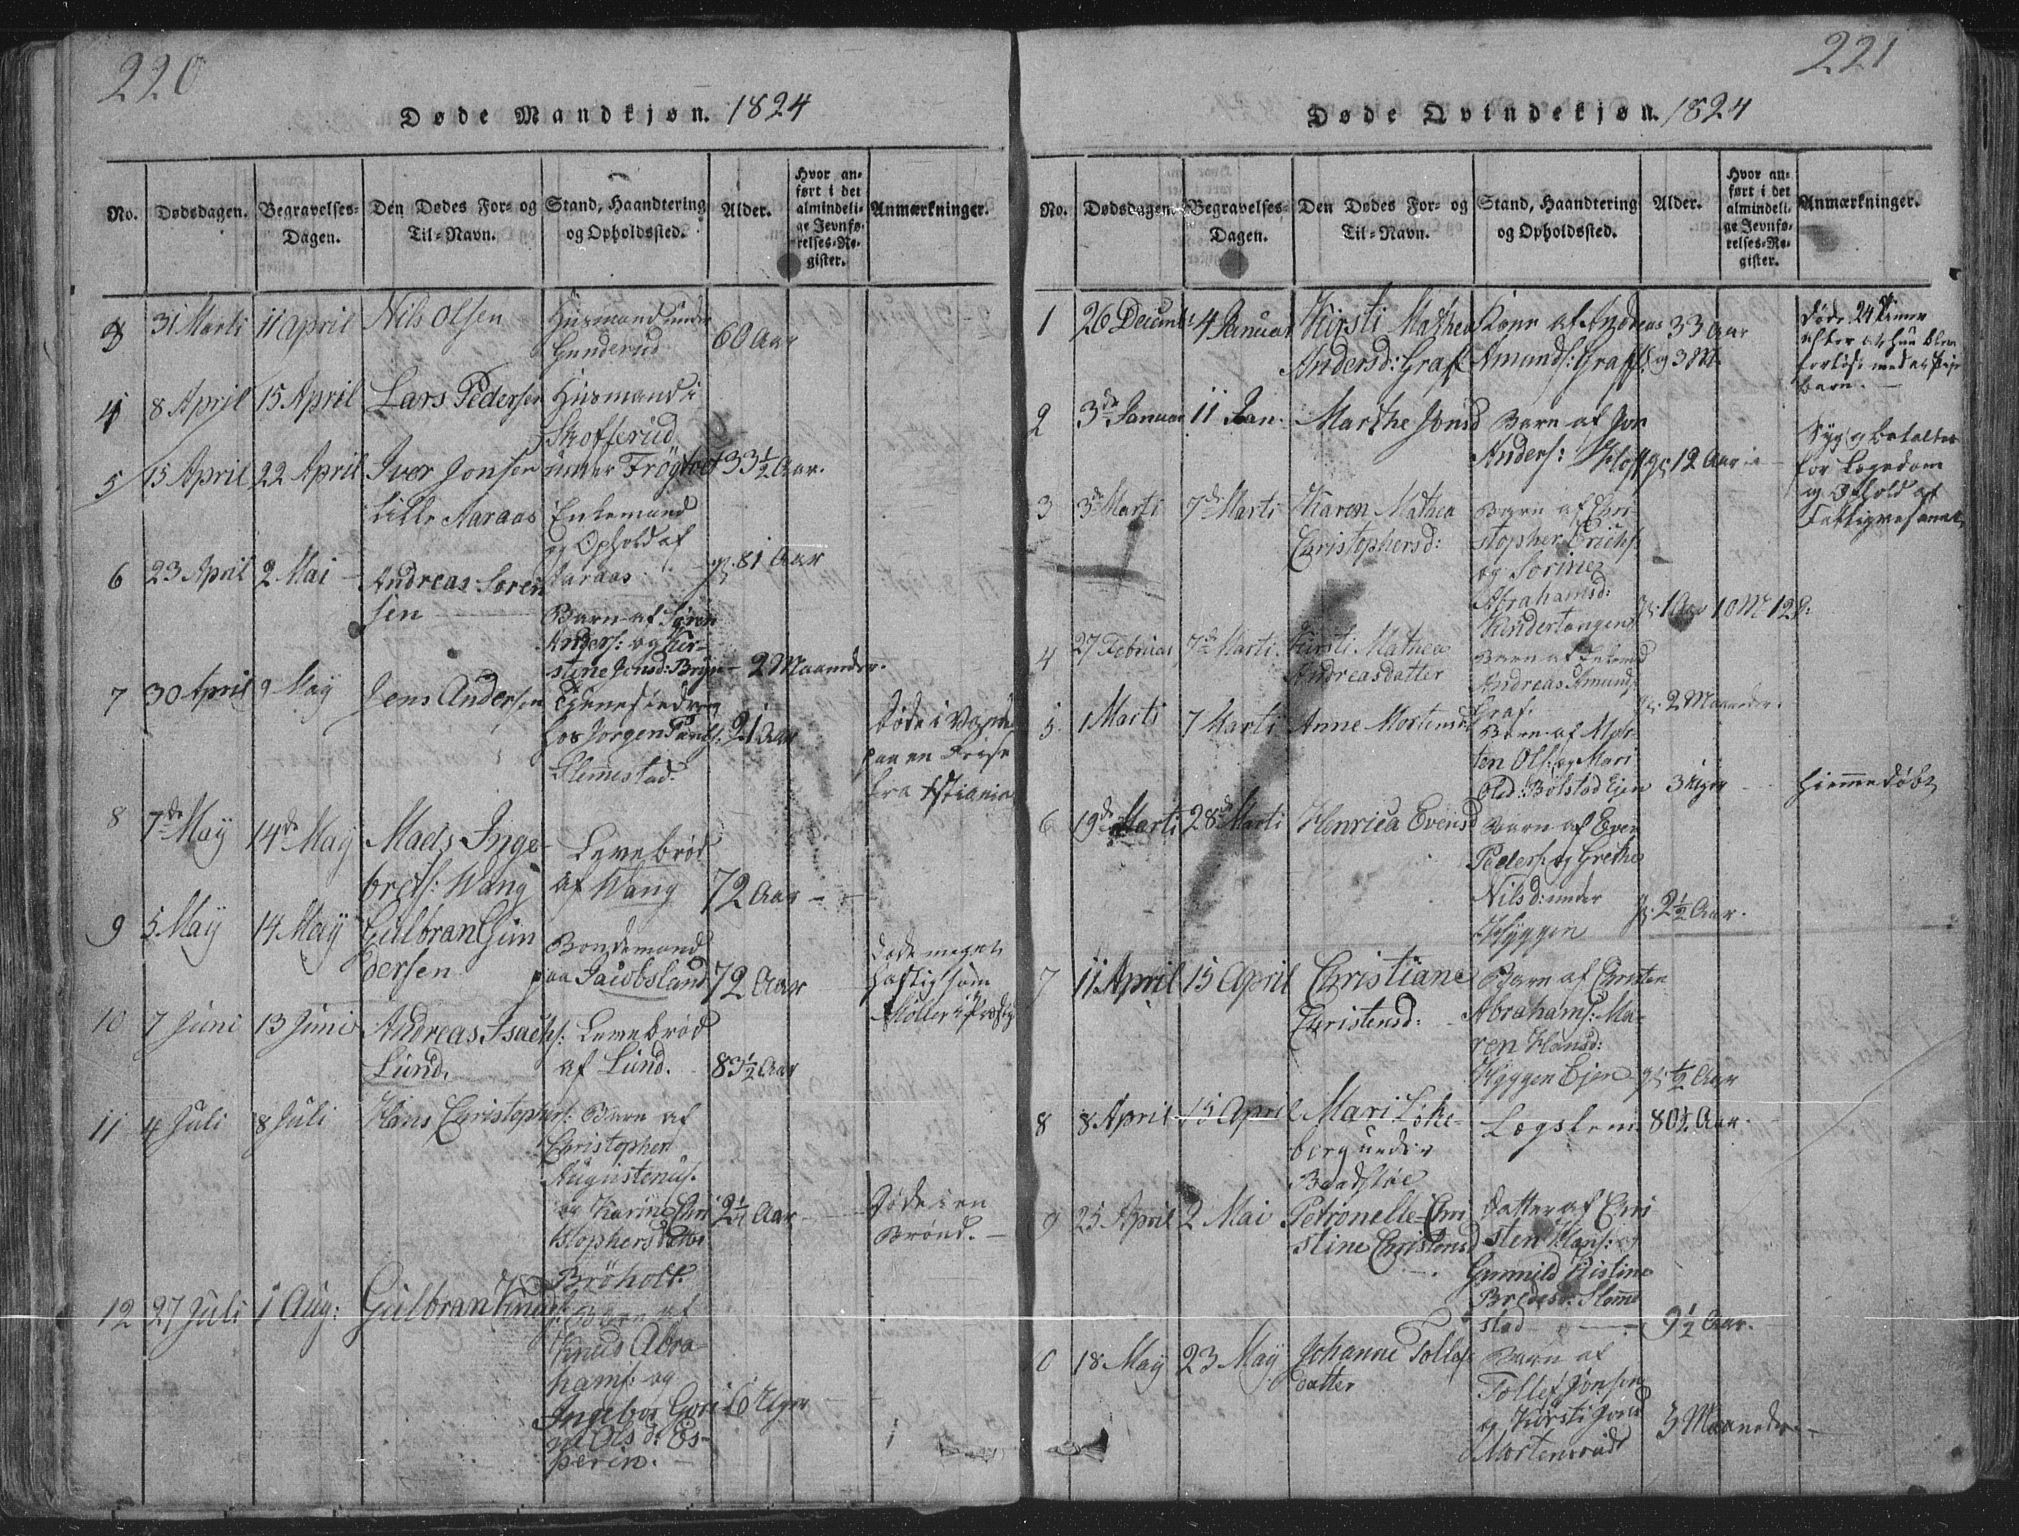 220
Døde Mandkjøn. 1824
No.
Dødsdagen.
Begravelses-
Dagen.
Den Dødes For- og
Til-Navn.
Stand, Haandtering
og Opholdssted.
Alder.
Hvor an-
ført i det
almindeli-
ge Jevnfø-
relses-Re-
gister.
Anmærkninger.
3 31 Marti 11 April Nils Olsen Huusmand under
Gunderud 60 Aar
4 8 April 15 April Lars Pedersen Huusmand i
Skofterud
5 15 April 22 April Iver Jonsen under Frögtvet 33½ Aar.
Lille Aaraas Enkemand
og Ophold af
Aaraas 81 Aar
6 23 April 2 Mai Andreas Soren
sen
Barn af Sören
Anders: og Kir-
stine Jonsd: Brye 2 Maaneder.
7 30 April 9 May Jens Andersen Tjenestedreng
hos Jörgen Pauls: 21 Aar
Slemestad.
Døde i Vognen
paa en Reise
fra Xstiania
8 7de May 14de May Mads Inge-
brets: Wang
Levebrød
af Wang 72 Aar
9 5 May 14 May Gulbran Gun
dersen
Bondemand
paa Jacobsland 72 Aar
Døde meget
hastig som
10 7 Juni 13 Juni Andreas Isachs:
Lund.
Levebrød
af Lund. 83½ Aar
11 4 Juli 8 Juli Hans Christophers: Barn af
Christopher
Augustinus:
og Karine Chri
stophersdatter
Bröholt. 2¼ Aar
Døde i en
Brønd.
12 27 Juli 1 Aug: Gulbran Knuds:
Barn af
Knud Abra-
hams: og
Ingebor Guri
Ols d: Es-
perin. 6 Uger
221
Døde Qvindekjøn. 1824
No.
Dødsdagen.
Begravelses-
Dagen.
Den Dødes For- og
Til-Navn.
Stand, Haandtering
og Opholdssted.
Alder.
Hvor an-
ført i det
almindeli-
ge Jevnfø-
relses-Re-
gister.
Anmærkninger.
1 26 Decemb: 4 Januar Kirsti Mathea Kone af Andreas 33 Aar
Andersd: Graf Amunds: Graff og 3 M.
Døde 24 Timer
efter at hun blev
forløst med et
barn.
2 3de Januar 11 Jan. Marthe Jonsd Barn af Jon
Anders: 12 Aar
Syg og betaltes
for Lægedom
og Ophold af
Fattigvæsenet
3 3de Marti 7de Marti Karen Mathea
Christophersd:
Barn af Chri
stopher Erichs:
og Sorine
Abrahamsd:
Kundertangen 1 Aar 10 M 12 D:
4 27 Februar 7de Marti Kirsti Mathea
Andreasdatter
Barn af
Andreas Amunds:
Graf. 2 Maaneder.
5 1 Marti 7 Marti Anne Mortensd
Barn af Mor-
ten Ols: og Mari
Olsd: Bölstad Ejer 3 Uger
Hjemmedøbt
6 19de Marti 28de Marti Henrica Evensd Barn af Even
Peders: og Grethe
Nilsd: under
Hyggen 2½ Aar.
7 11 April 15 April Christiane
Christensd:
Barn af Christen
Abrahams: Ma-
ren Hansd:
Hyggen Ejer ½ Aar
8 8 April 15 April Mari Löke-
berg under
Baadstøe
Lægslem 80½ Aar.
9 25 April 2 Mai Petronelle Chri
stine Christensd
Datter af Chri
sten Hans: og
Gunnild Kistine
Bredesd: Slemme
stad 9½ Aar.
0 18 May 23 May Johanne Tollefs
datter
Barn af
Tollef Jonsen
og Kirsti Jons
Mortensrud 3 Maaneder.